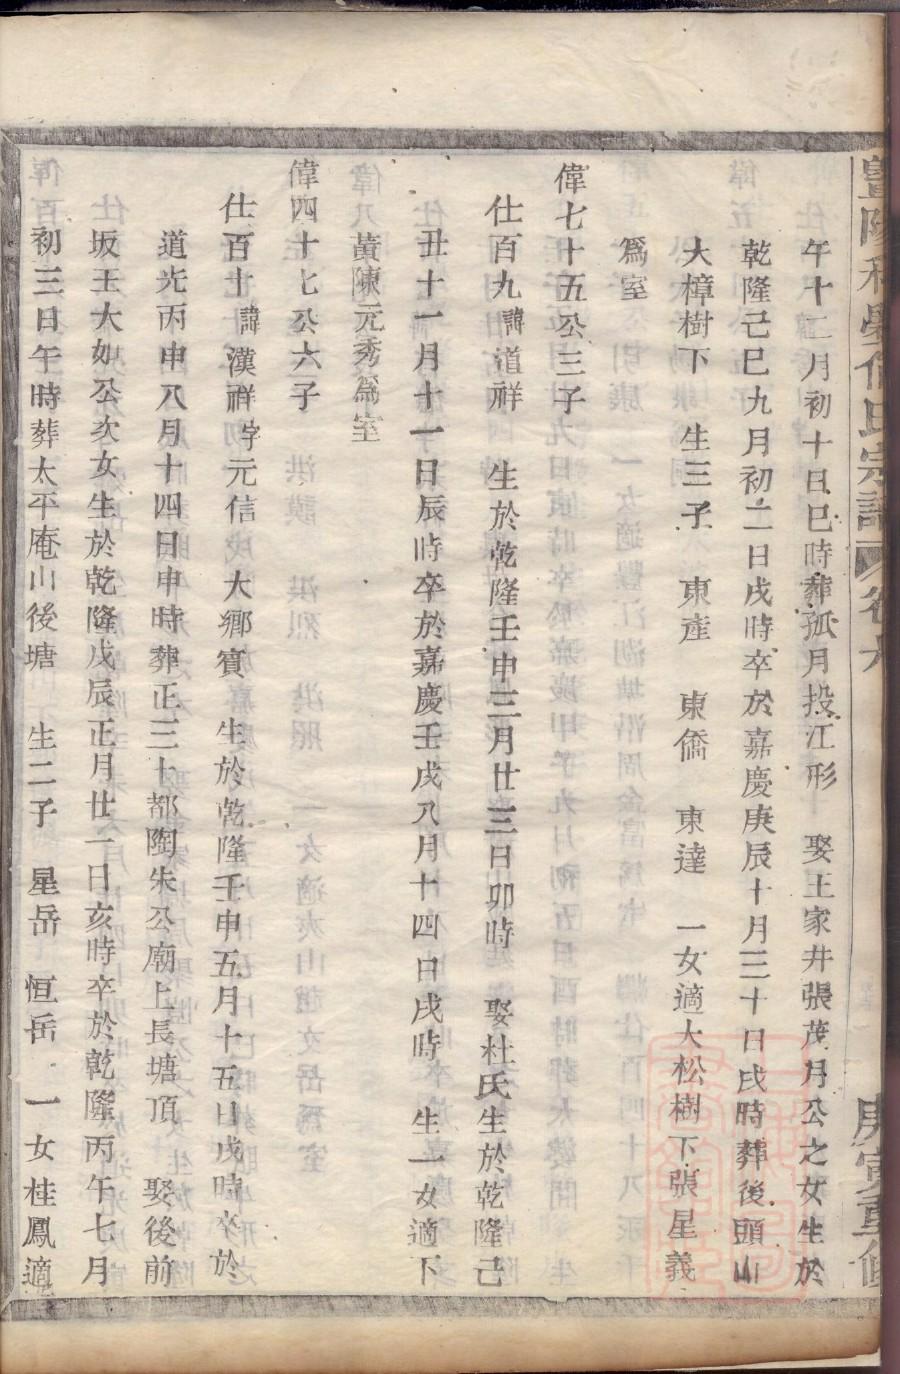 午十二月初十日巳時葬孤月投江形　娶王家井張茂月公之女生於
乾隆己巳九月初二日戌時卒於嘉慶庚辰十月三十日戌時葬後頭山
大樟樹下　生三子　東產　東僑　東達　一女適大松樹下張星義
爲室
偉七十五公三子
仕百九諱道祥　生於乾隆壬申三月廿三日卯時　娶杜氏生於乾隆己
丑十一月十一日辰時卒於嘉慶壬戌八月十四日戌時　生一女適下
黃陳元秀爲室
偉四十七公六子
仕百十諱漢祥字元信　大鄉賓　生於乾隆壬申五月十五日戌時卒於
道光丙申八月十四日申時葬正三十都陶朱公廟上長塘頂　娶後前
坂王大如公次女生於乾隆戊辰正月廿一日亥時卒於乾隆丙午七月
初三日午時葬太平庵山後塘　生二子　星岳　恒岳　一女桂鳳適